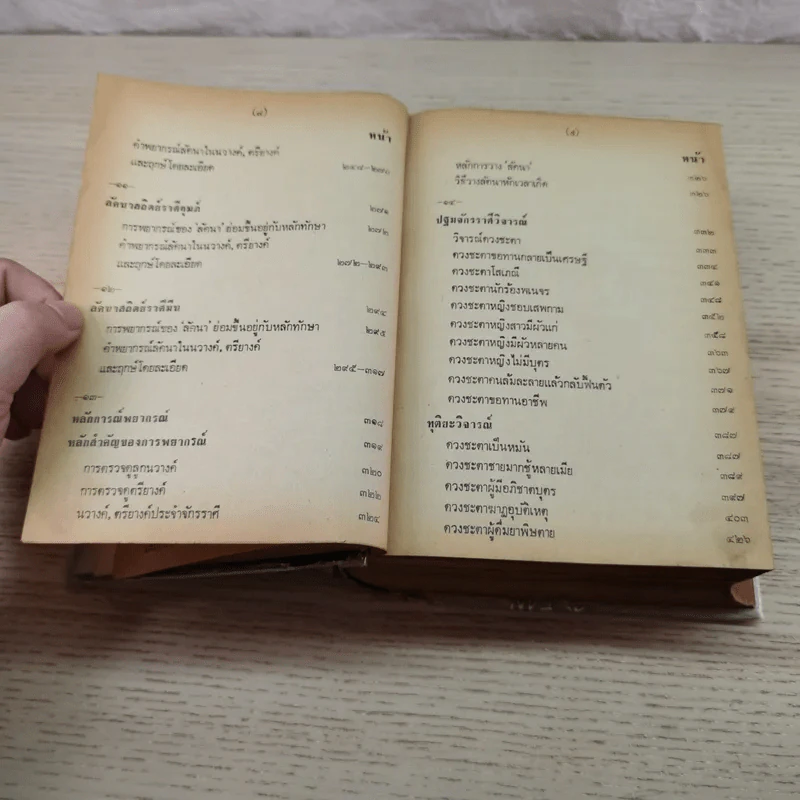 (๘)
หน้า
คำพยากรณ์ลัคนาในนวางค์, ตรียางค์
และฤกษ์โดยละเอียด ๒๔๘-๒๗๐
-๑๑-
ลัคนาสถิตย์ราศีกุมภ์ ๒๗๑
การพยากรณ์ของ 'ลัคนา' ย่อมขึ้นอยู่กับหลักทักษา ๒๗๒
คำพยากรณ์ลัคนาในนวางค์, ตรียางค์
และฤกษ์โดยละเอียด ๒๗๒-๒๙๓
-๑๒-
ลัคนาสถิตย์ราศีมีน ๒๙๔
การพยากรณ์ของ 'ลัคนา' ย่อมขึ้นอยู่กับหลักทักษา ๒๙๕
คำพยากรณ์ลัคนาในนวางค์, ตรียางค์
และฤกษ์โดยละเอียด ๒๙๕-๓๑๗
-๑๓-
หลักการณ์พยากรณ์ ๓๑๘
หลักสำคัญของการพยากรณ์ ๓๑๙
การตรวจดูลูกนวางค์ ๓๒๐
การตรวจดูตรียางค์ ๓๒๒
นวางค์, ตรียางค์ประจำจักรราศี ๓๒๔
(๙)
หน้า
หลักการวาง 'ลัคนา' ๓๒๖
วิธีวางลัคนาหักเวลาเกิด ๓๒๖
-๑๔-
ปฐมจักรราศีวิจารณ์ ๓๓๒
วิจารณ์ดวงชะตา ๓๓๓
ดวงชะตาขอทานกลายเป็นเศรษฐี ๓๓๔
ดวงชะตาโสเภณี ๓๔๑
ดวงชะตานักร้องพเนจร ๓๔๘
ดวงชะตาหญิงชอบเสพกาม ๓๕๒
ดวงชะตาหญิงสาวมีผัวแก่ ๓๕๘
ดวงชะตาหญิงมีผัวหลายคน ๓๖๓
ดวงชะตาหญิงไม่มีบุตร ๓๖๗
ดวงชะตาคนล้มละลายแล้วกลับฟื้นตัว ๓๗๑
ดวงชะตาขอทานอาชีพ ๓๗๙
ทุติยะวิจารณ์ ๓๘๗
ดวงชะตาเป็นหมัน ๓๘๗
ดวงชะตาชายมากชู้หลายเมีย ๓๘๙
ดวงชะตาผู้มีอภิชาตบุตร ๓๙๗
ดวงชะตาฆาฏอุบัติเหตุ ๔๐๓
ดวงชะตาผู้ดื่มยาพิษตาย ๔๒๖